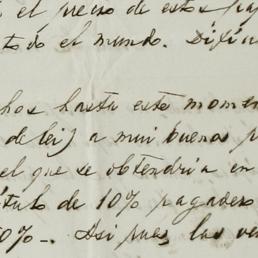 el precio de estos pa
todo el mundo. Difin
chos hasta este momen
de lei) a mui buenos p
el que se obtendria en
título de 10% pagadero
0%-. Asi pues, las ve